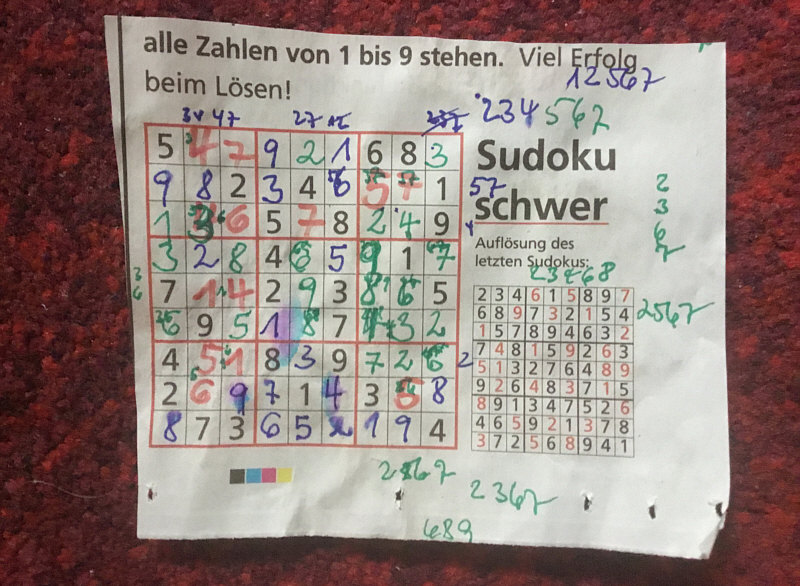 alle Zahlen von 1 bis 9 stehen. Viel Erfolg
beim Lösen!
12567
234567
34 47 27
5 4 7 9 2 1 6 8 3
9 8 2 3 4 6 5 7 1
1 3 6 5 7 8 2 4 9
3 2 8 4 6 5 9 1 7
7 1 4 2 9 3 8 6 5
6 9 5 1 8 7 4 3 2
4 5 1 8 3 9 7 2 6
2 6 9 7 1 4 3 5 8
8 7 3 6 5 2 1 9 4
Sudoku
57
schwer
Auflösung des
letzten Sudokus:
2
3
6
7
2 3 4 6 1 5 8 9 7
6 8 9 7 3 2 1 5 4
1 5 7 8 9 4 6 3 2
7 4 8 1 5 9 2 6 3
5 1 3 2 7 6 4 8 9
9 2 6 4 8 3 7 1 5
8 9 1 3 4 7 5 2 6
4 6 5 9 2 1 3 7 8
3 7 2 5 6 8 9 4 1
2567
3
6
2
2367
689